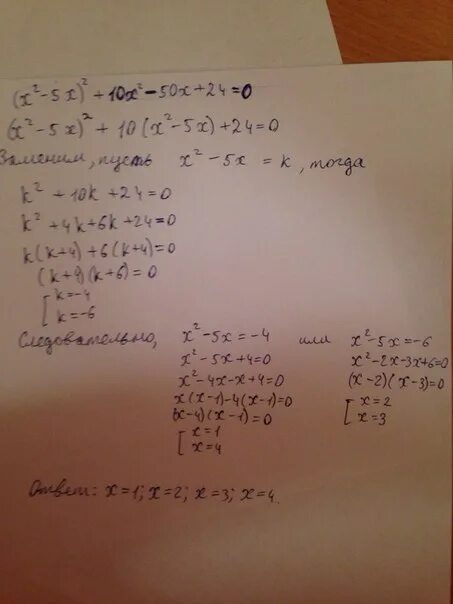 (x²-5x)² + 10x² - 50x + 24 = 0
(x²-5x)² + 10(x²-5x) + 24 = 0
Заменим, пусть x² - 5x = k, тогда
k² + 10k + 24 = 0
k² + 4k + 6k + 24 = 0
k(k+4) + 6(k+4) = 0
(k+4)(k+6) = 0
[k = -4
k = -6
Следовательно, x² - 5x = -4 или x² - 5x = -6
x² - 5x + 4 = 0
x² - 4x - x + 4 = 0
x(x-1) - 4(x-1) = 0
(x-4)(x-1) = 0
[x = 1
x = 4
x² - 2x - 3x + 6 = 0
(x-2)(x-3) = 0
[x = 2
x = 3
Ответ: x = 1; x = 2; x = 3; x = 4.